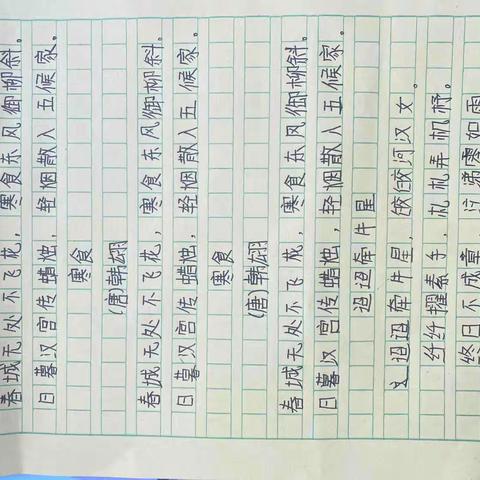 春城无处不飞花，寒食东风御柳斜。
日暮汉宫传蜡烛，轻烟散入五候家。
寒食
(唐)韩翃
春城无处不飞花，寒食东风御柳斜。
日暮汉宫传蜡烛，轻烟散入五候家。
寒食
(唐)韩翃
春城无处不飞花，寒食东风御柳斜。
日暮汉宫传蜡烛，轻烟散入五候家。
迢迢牵牛星
迢迢牵牛星，皎皎河汉女。
纤纤擢素手，札札弄机杼。
终日不成章，泣涕零如雨